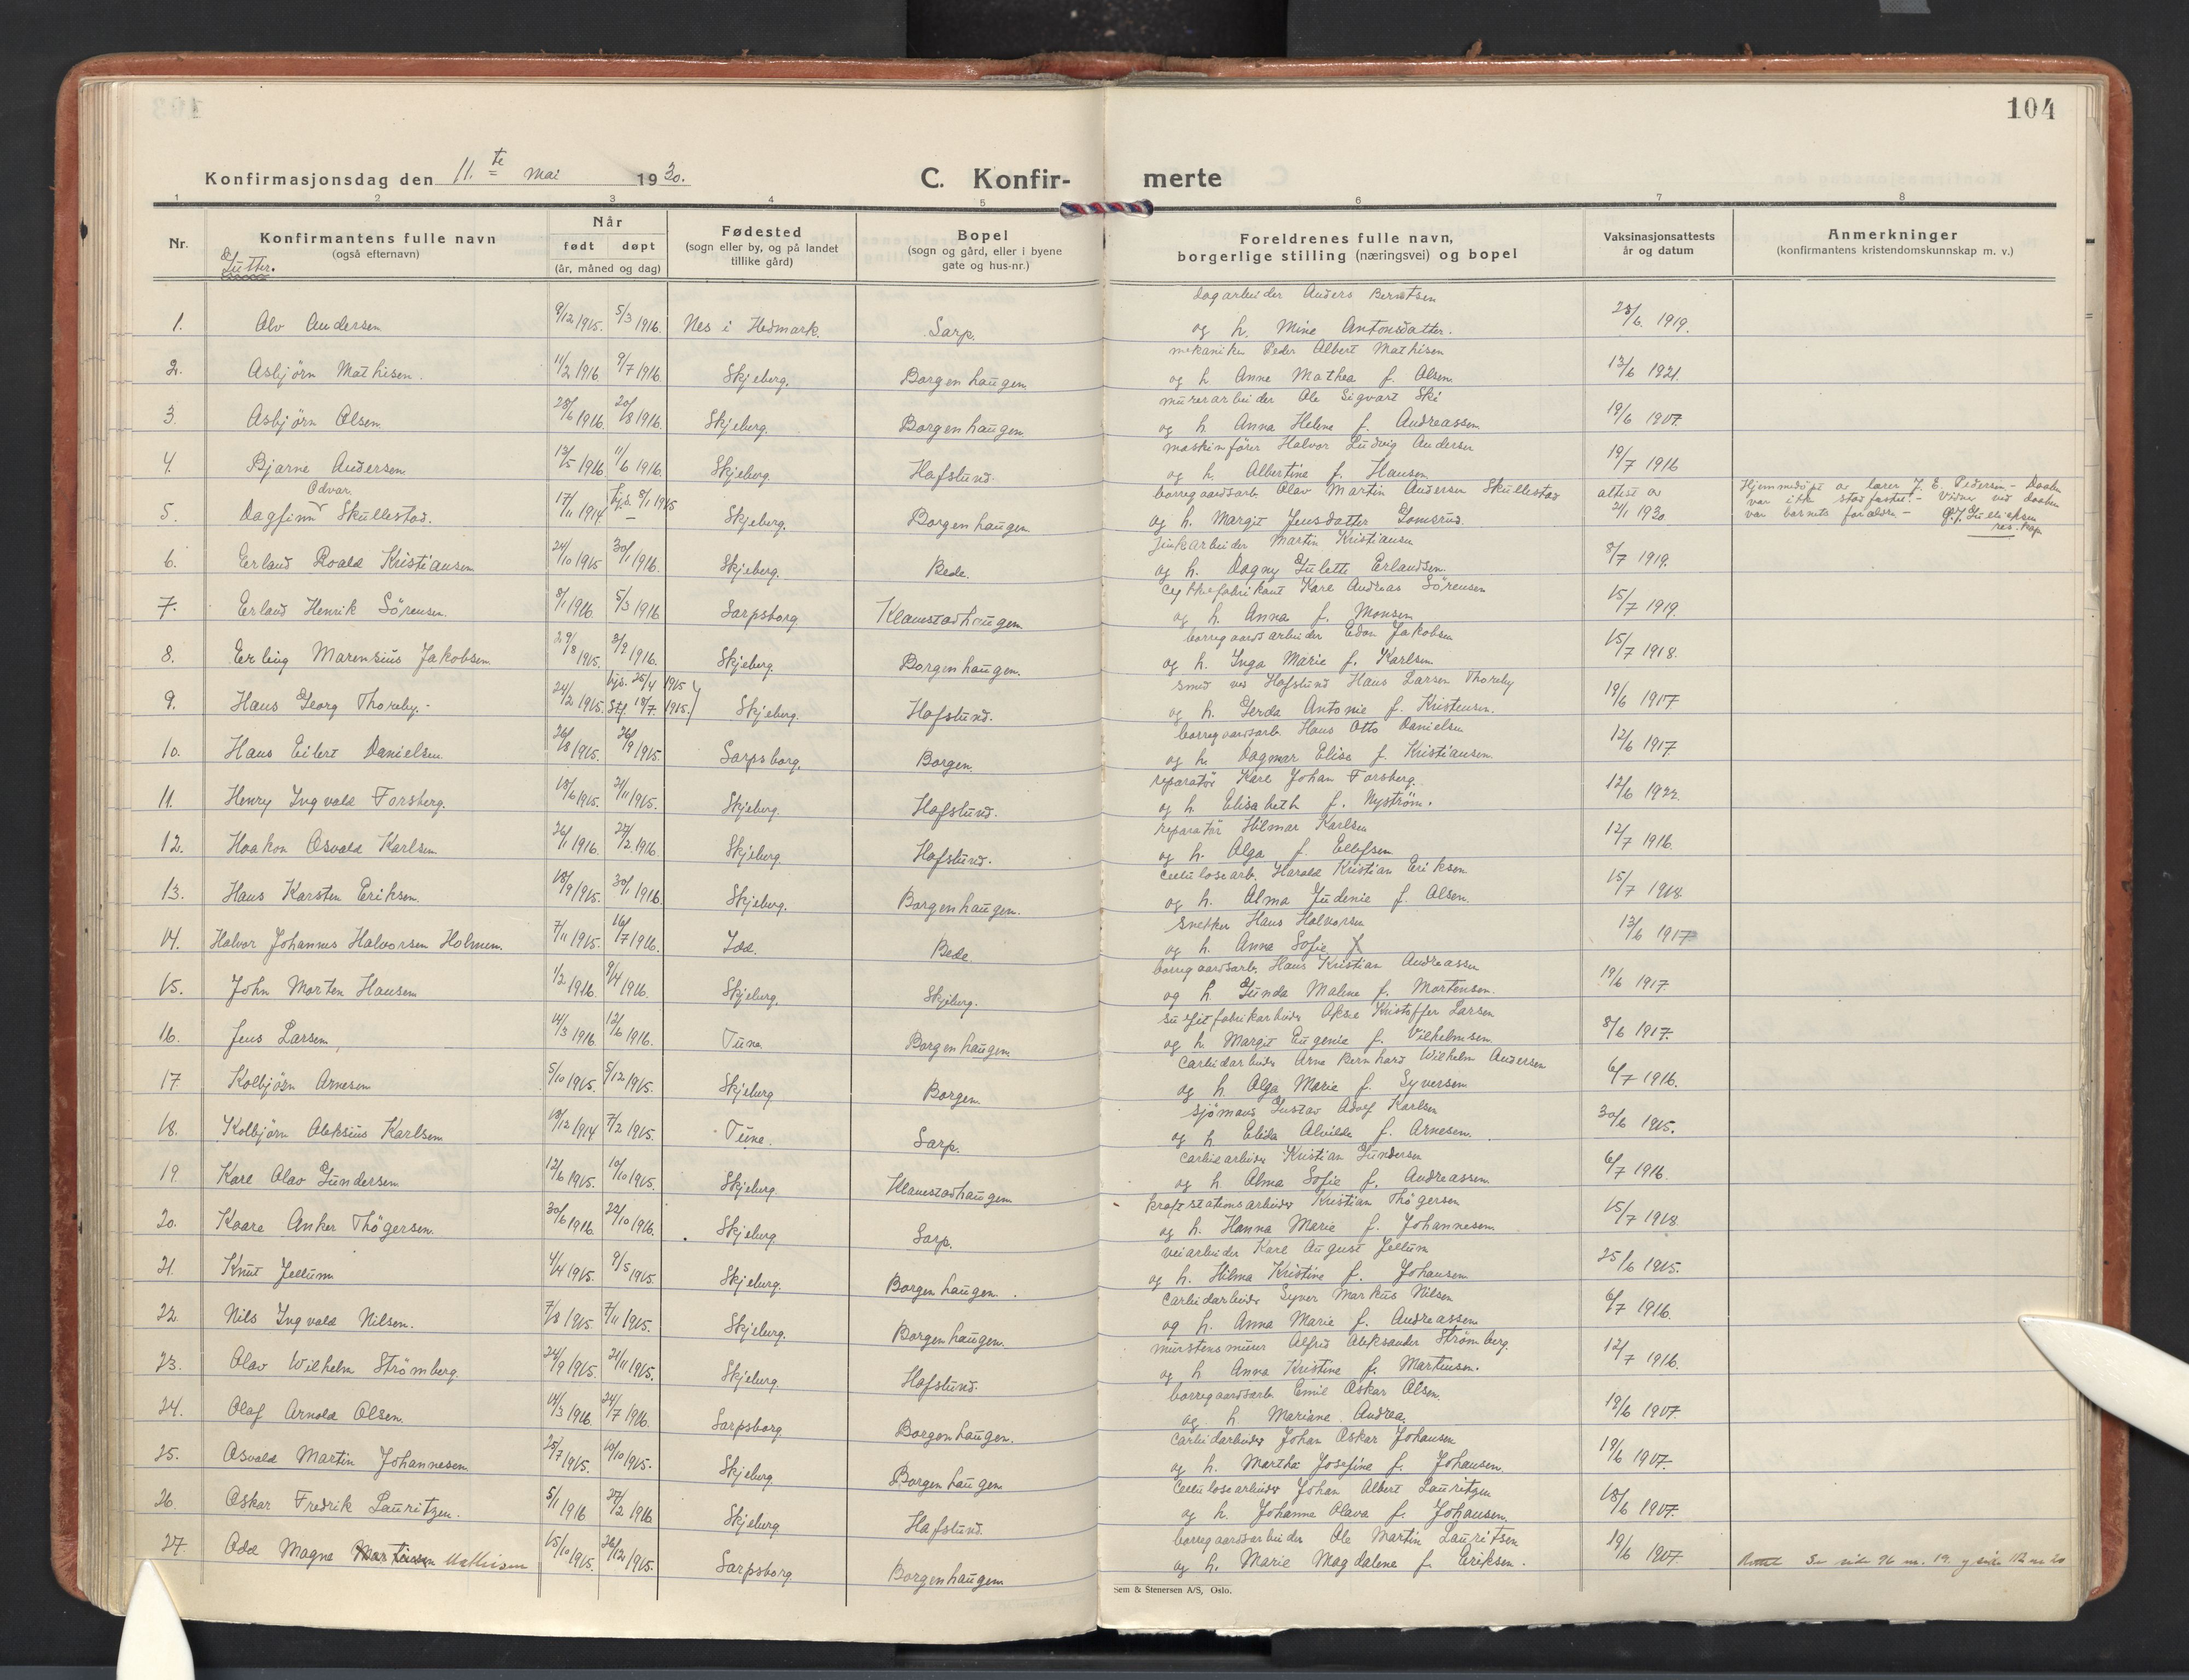 104
Konfirmasjonsdag den 11.te mai 1930.
C. Konfir- merte
1 2 3 4 5 6 7 8
Nr.
Konfirmantens fulle navn
(også efternavn)
Gutter.
Når
født døpt
(år, måned og dag)
Fødested
(sogn eller by, og på landet
tillike gård)
Bopel
(sogn og gård, eller i byene
gate og hus-nr.)
Foreldrenes fulle navn,
borgerlige stilling (næringsvei) og bopel
Vaksinasjonsattests
år og datum
Anmerkninger
(konfirmantens kristendomskunnskap m. v.)
dagarbeider Anders Berntsen
1. Alv Andersen 9/12 1915. 5/3 1916. Nes i Hedmark. Sarp. og h. Mine Antonsdatter. 23/6 1919.
mekaniker Peder Albert Mathisen
2. Asbjörn Mathisen. 11/2 1916 9/7 1916. Skjeberg. Borgenhaugen og h. Anne Mathea f. Olsen 13/6 1921.
murerarbeider Ole Sigvart Ski
3. Asbjörn Olsen 28/6 1916. 20/8 1916. Skjeberg. Borgenhaugen og h. Anna Helene f. Andreassen 19/6 1917.
maskinförer Halvor Ludvig Andersen
4. Bjarne Andersen 13/5 1916 11/6 1916. Skjeberg. Hafslund. og h. Albertine f. Hansen 19/7 1916
borregaardsarb. Olav Martin Andersen Skullestad
5. Dagfinn Odvar Skullestad. 17/11 1914. hjd. 8/1 1915 – Skjeberg. Borgenhaugen og h. Margit Jensdatter Lomsrud attest av 21/1 1930
Hjemmedöpt av lærer J. E. Pedersen – Daaben
var ikke stadfestet. – Vidner ved daaben
var barnets forældre –
res. kap.
Martin Kristiansen
6. Erland Roald Kristiansen 24/10 1915 30/1 1916. Skjeberg. Bede. og h. Dagny Julette Erlandsen. 8/7 1919.
Karl Andreas Sörensen
7. Erland Henrik Sörensen. 8/1 1916 5/3 1916 Sarpsborg Klavestadhaugen og h. Anna f. Monsen 15/7 1919.
borregaardsarbeider Edon Jakobsen
8. Erling Marensius Jakobsen 29/8 1915. 3/2 1916. Skjeberg. Borgenhaugen. og h. Inga Marie f. Karlsen 15/7 1918.
smed ved Hafslund Hans Larsen Thoreby
9. Hans Georg Thoreby. 24/2 1915. hjd. 25/4 1915 Stf. 18/7 1915. Skjeberg. Hafslund. og h. Gerda Antonie f. Kristensen. 19/6 1917
borregaardsarb. Hans Otto Danielsen
10. Hans Eilert Danielsen 26/8 1915. 26/9 1915. Sarpsborg. Borgen. og h. Dagmar Elise f. Kristiansen 12/6 1917
reparatör Karl Johan Forsberg.
11. Henry Ingvald Forsberg. 18/6 1915. 21/11 1915. Skjeberg. Hafslund. og h. Elisabeth f. Nyström. 12/6 1922
reparatör Hilmar Karlsen
12. Haakon Osvald Karlsen 26/1 1916. 27/2 1916 Skjeberg. Hafslund. og h. Olga f. Ellefsen 12/7 1916
Celulosearb. Harald Kristian Eriksen
13. Hans Karsten Eriksen. 18/9 1915. 30/1 1916. Skjeberg. Borgenhaugen. og h. Alma Judenie f. Olsen. 15/7 1918
Snekker Hans Halvorsen
14. Halvor Johannes Halvorsen Holmen. 7/11 1915. 16/7 1916. Idd. Bede. og h. Anna Sofie f. 13/6 1917
borregaardsarb. Hans Kristian Andreassen
15. John Morten Hansen 1/2 1916. 9/4 1916. Skjeberg. Skjeberg. og h. Gunda Maline f. Mortensen. 19/6 1917
sulfitfabrikarbeider Aksel Kristoffer Larsen
16. Jens Larsen 14/3 1916 12/6 1916. Tune Borgenhaugen og h. Margit Eugenie f. Vilhelmsen 8/6 1917.
Carbidarbeider Arne Bernhard Wilhelm Andersen
17 Kolbjörn Arnesen 5/10 1915. 5/12 1915. Skjeberg Borgen og h. Olga Marie f. Syversen 6/7 1916.
Sjömand Gustav Adolf Karlsen
18. Kolbjörn Aleksius Karlsen 18/12 1914 7/2 1915. Tune. Sarp. og h. Elida Alvilde f. Arnesen. 30/6 1915.
Carbidarbeider Kristian Gundersen
19. Karl Olav Gundersen 12/6 1915. 10/10 1915. Skjeberg Klavestadhaugen og h. Alma Sofie f. Andreassen 6/7 1916.
kraftstationsarbeider Kristian Thögersen
20. Kaare Anker Thögersen. 30/6 1916 22/10 1916. Skjeberg Sarp. og h. Hanna Marie f. Johannesen 15/7 1918.
veiarbeider Karl August Jellum
21. Knut Jellum 4/4 1915. 9/5 1915. Skjeberg. Borgenhaugen. og h. Hilma Kristine f. Johansen 25/6 1915.
Carbidarbeider Syver Markus Nilsen
22. Nils Ingvald Nilsen. 7/8 1915 7/11 1915. Skjeberg. Borgenhaugen. og h. Anna Marie f. Andreassen 6/7 1916.
murstensmurer Alfred Aleksander Strömberg.
23. Olav Wilhelm Strömberg 24/9 1915. 21/11 1915. Skjeberg Hafslund. og h. Anna Kristine f. Martinsen. 12/7 1916.
borregaardsarb. Emil Oskar Olsen.
24. Olaf Arnold Olsen. 14/3 1916. 24/7 1916. Sarpsborg Borgenhaugen. og h. Mariane Andrea. 19/6 1917.
Carbidarbeider Johan Oskar Johansen
25. Osvald Martin Johannesen. 25/7 1915. 10/10 1915. Skjeberg Borgenhaugen og h. Martha Josefine f. Johansen. 19/6 1917.
Celulosearbeider Johan Albert Lauritzen
26. Oskar Fredrik Lauritzen. 5/1 1916 27/2 1916. Skjeberg Hafslund. og h. Johanne Olava f. Johansen. 18/6 1917.
borregaardsarbeider Ole Martin Lauritsen
27. Odd Magne Martinsen Mathisen 15/10 1915. 26/12 1915. Sarpsborg Borgenhaugen og h. Marie Magdalene f. Eriksen. 19/6 1917. Rettet Se side 96 nr. 19. og side 112 nr 20
Sem & Stenersen A/S, Oslo.